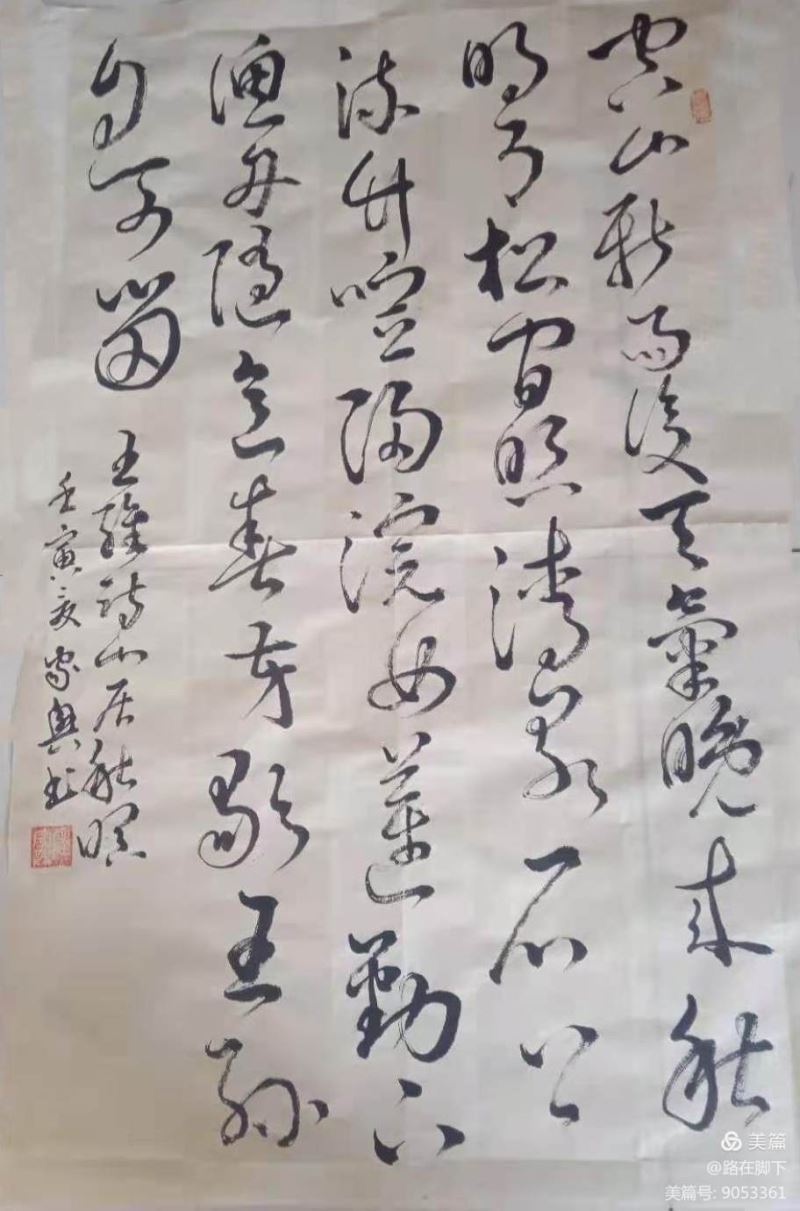 空山新雨後天氣晚来秋
明月松間照清泉石上
流竹喧歸浣女蓮動下
漁舟隨意春芳歇王孫
自可留
王維詩山居秋暝
壬寅夏家興书
美篇
@路在脚下
美篇号: 9053361